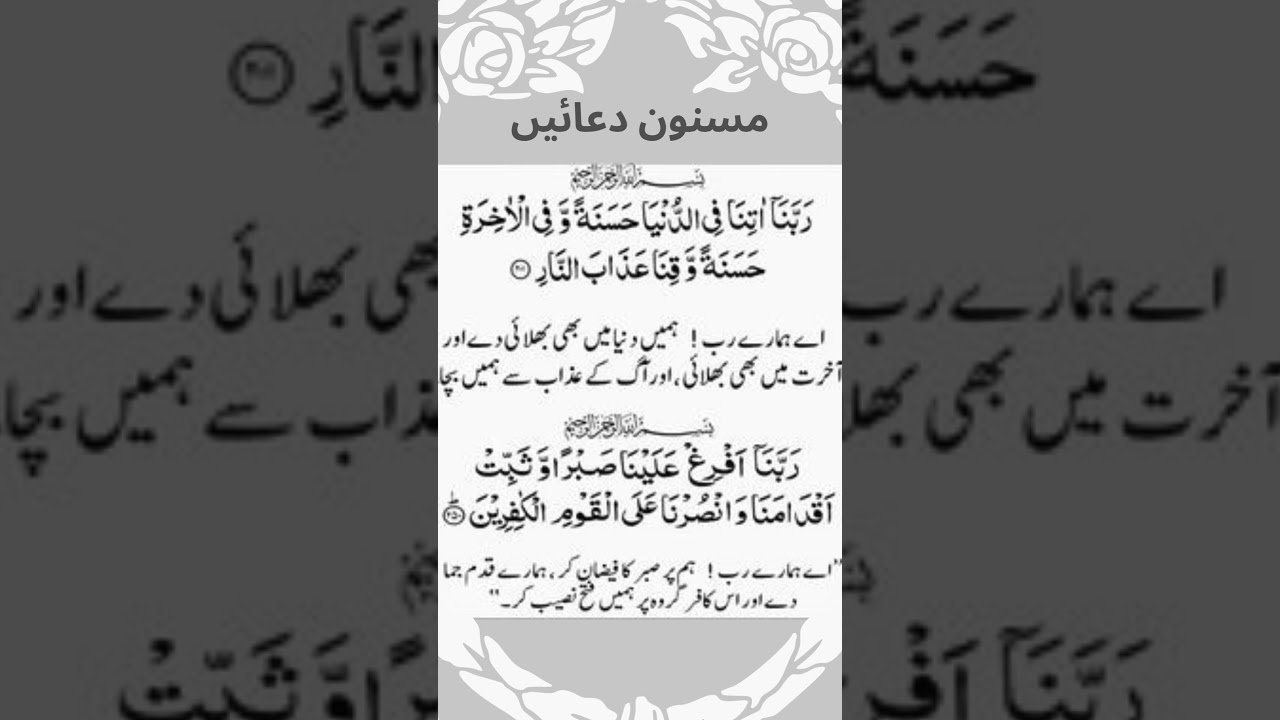 مسنون دعائیں
بِسْمِ اللّٰهِ الرَّحْمٰنِ الرَّحِیْمِ
رَبَّنَاۤ اٰتِنَا فِی الدُّنْیَا حَسَنَةً وَّ فِی الْاٰخِرَةِ
حَسَنَةً وَّ قِنَا عَذَابَ النَّارِ ﴿۲۰۱﴾
اے ہمارے رب! ہمیں دنیا میں بھی بھلائی دے اور
آخرت میں بھی بھلائی، اور آگ کے عذاب سے ہمیں بچا
بِسْمِ اللّٰهِ الرَّحْمٰنِ الرَّحِیْمِ
رَبَّنَاۤ اَفْرِغْ عَلَیْنَا صَبْرًا وَّ ثَبِّتْ
اَقْدَامَنَا وَ انْصُرْنَا عَلَی الْقَوْمِ الْكٰفِرِیْنَ ﴿۲۵۰﴾ؕ
"اے ہمارے رب! ہم پر صبر کا فیضان کر، ہمارے قدم جما
دے اور اس کافر گروہ پر ہمیں فتح نصیب کر۔"